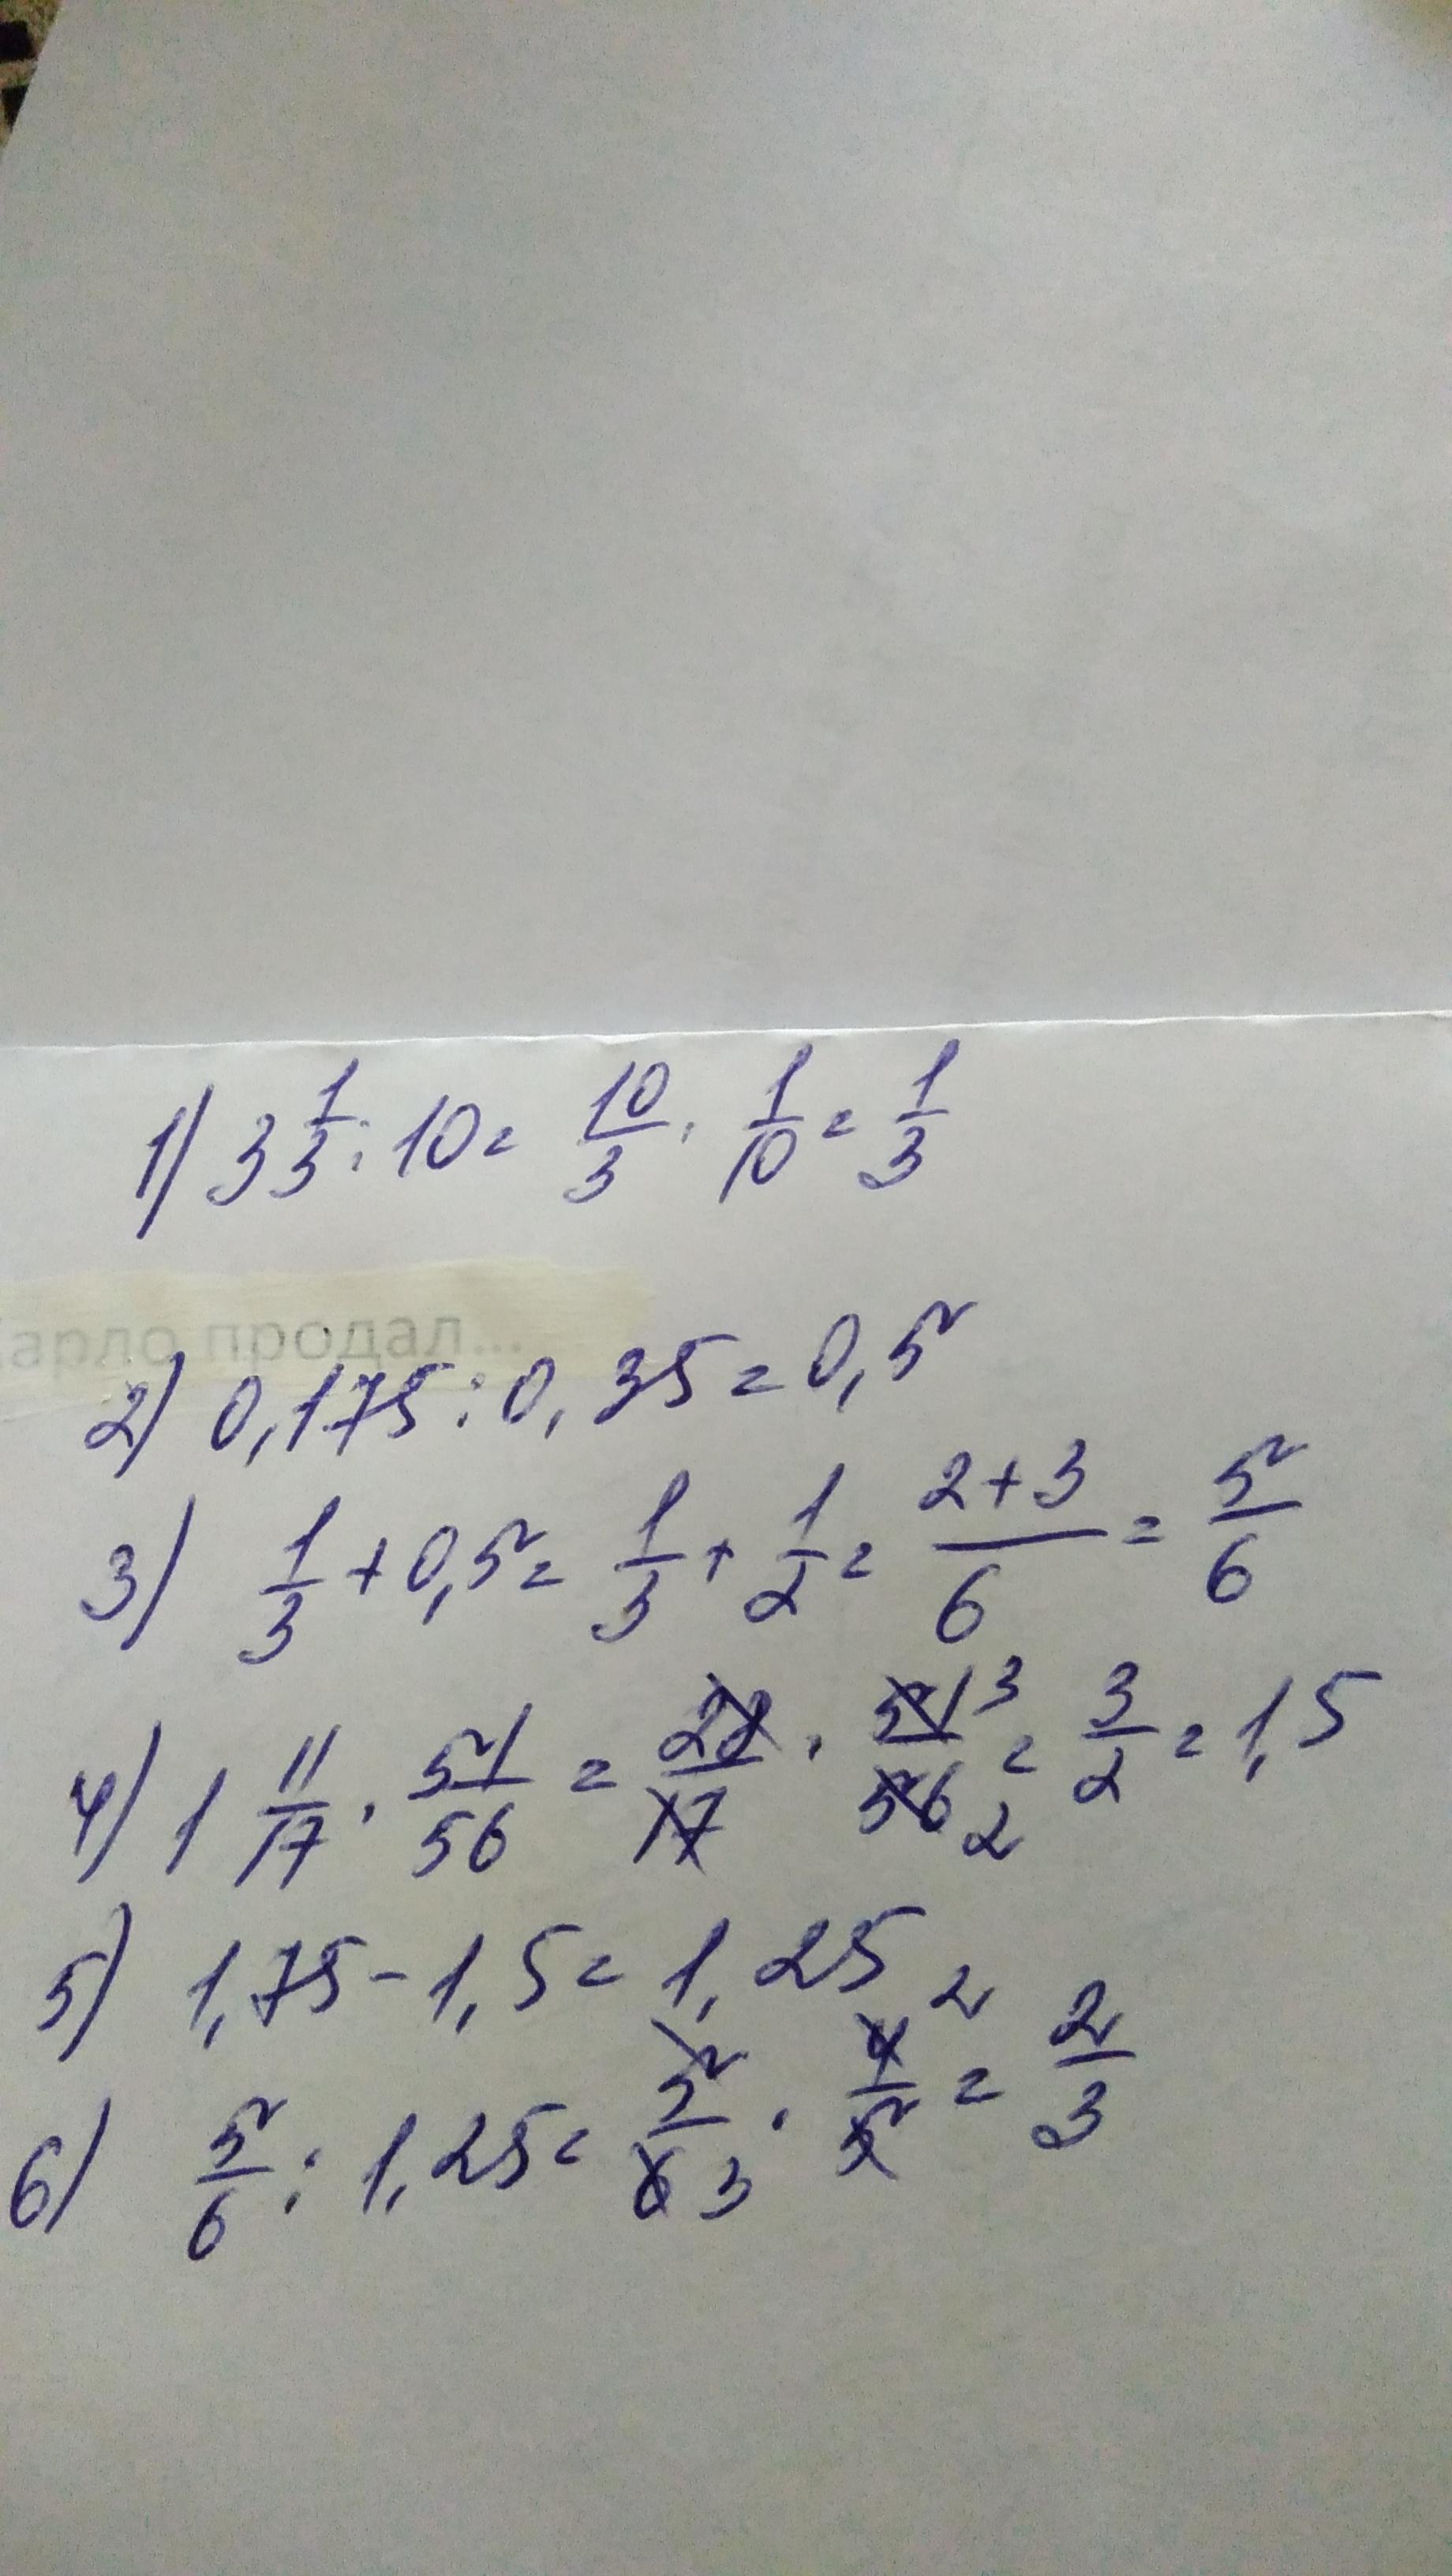 1) 3 1/3 : 10 = 10/3 · 1/10 = 1/3
Карло продал...
2) 0,175 : 0,35 = 0,5
3) 1/3 + 0,5 = 1/3 + 1/2 = 2+3/6 = 5/6
4) 1 11/17 · 51/56 = 28/17 · 51/56 3 2 = 3/2 = 1,5
5) 1,75 - 1,5 = 1,25
6) 5/6 : 1,25 = 5/6 3 · 4/5 2 = 2/3